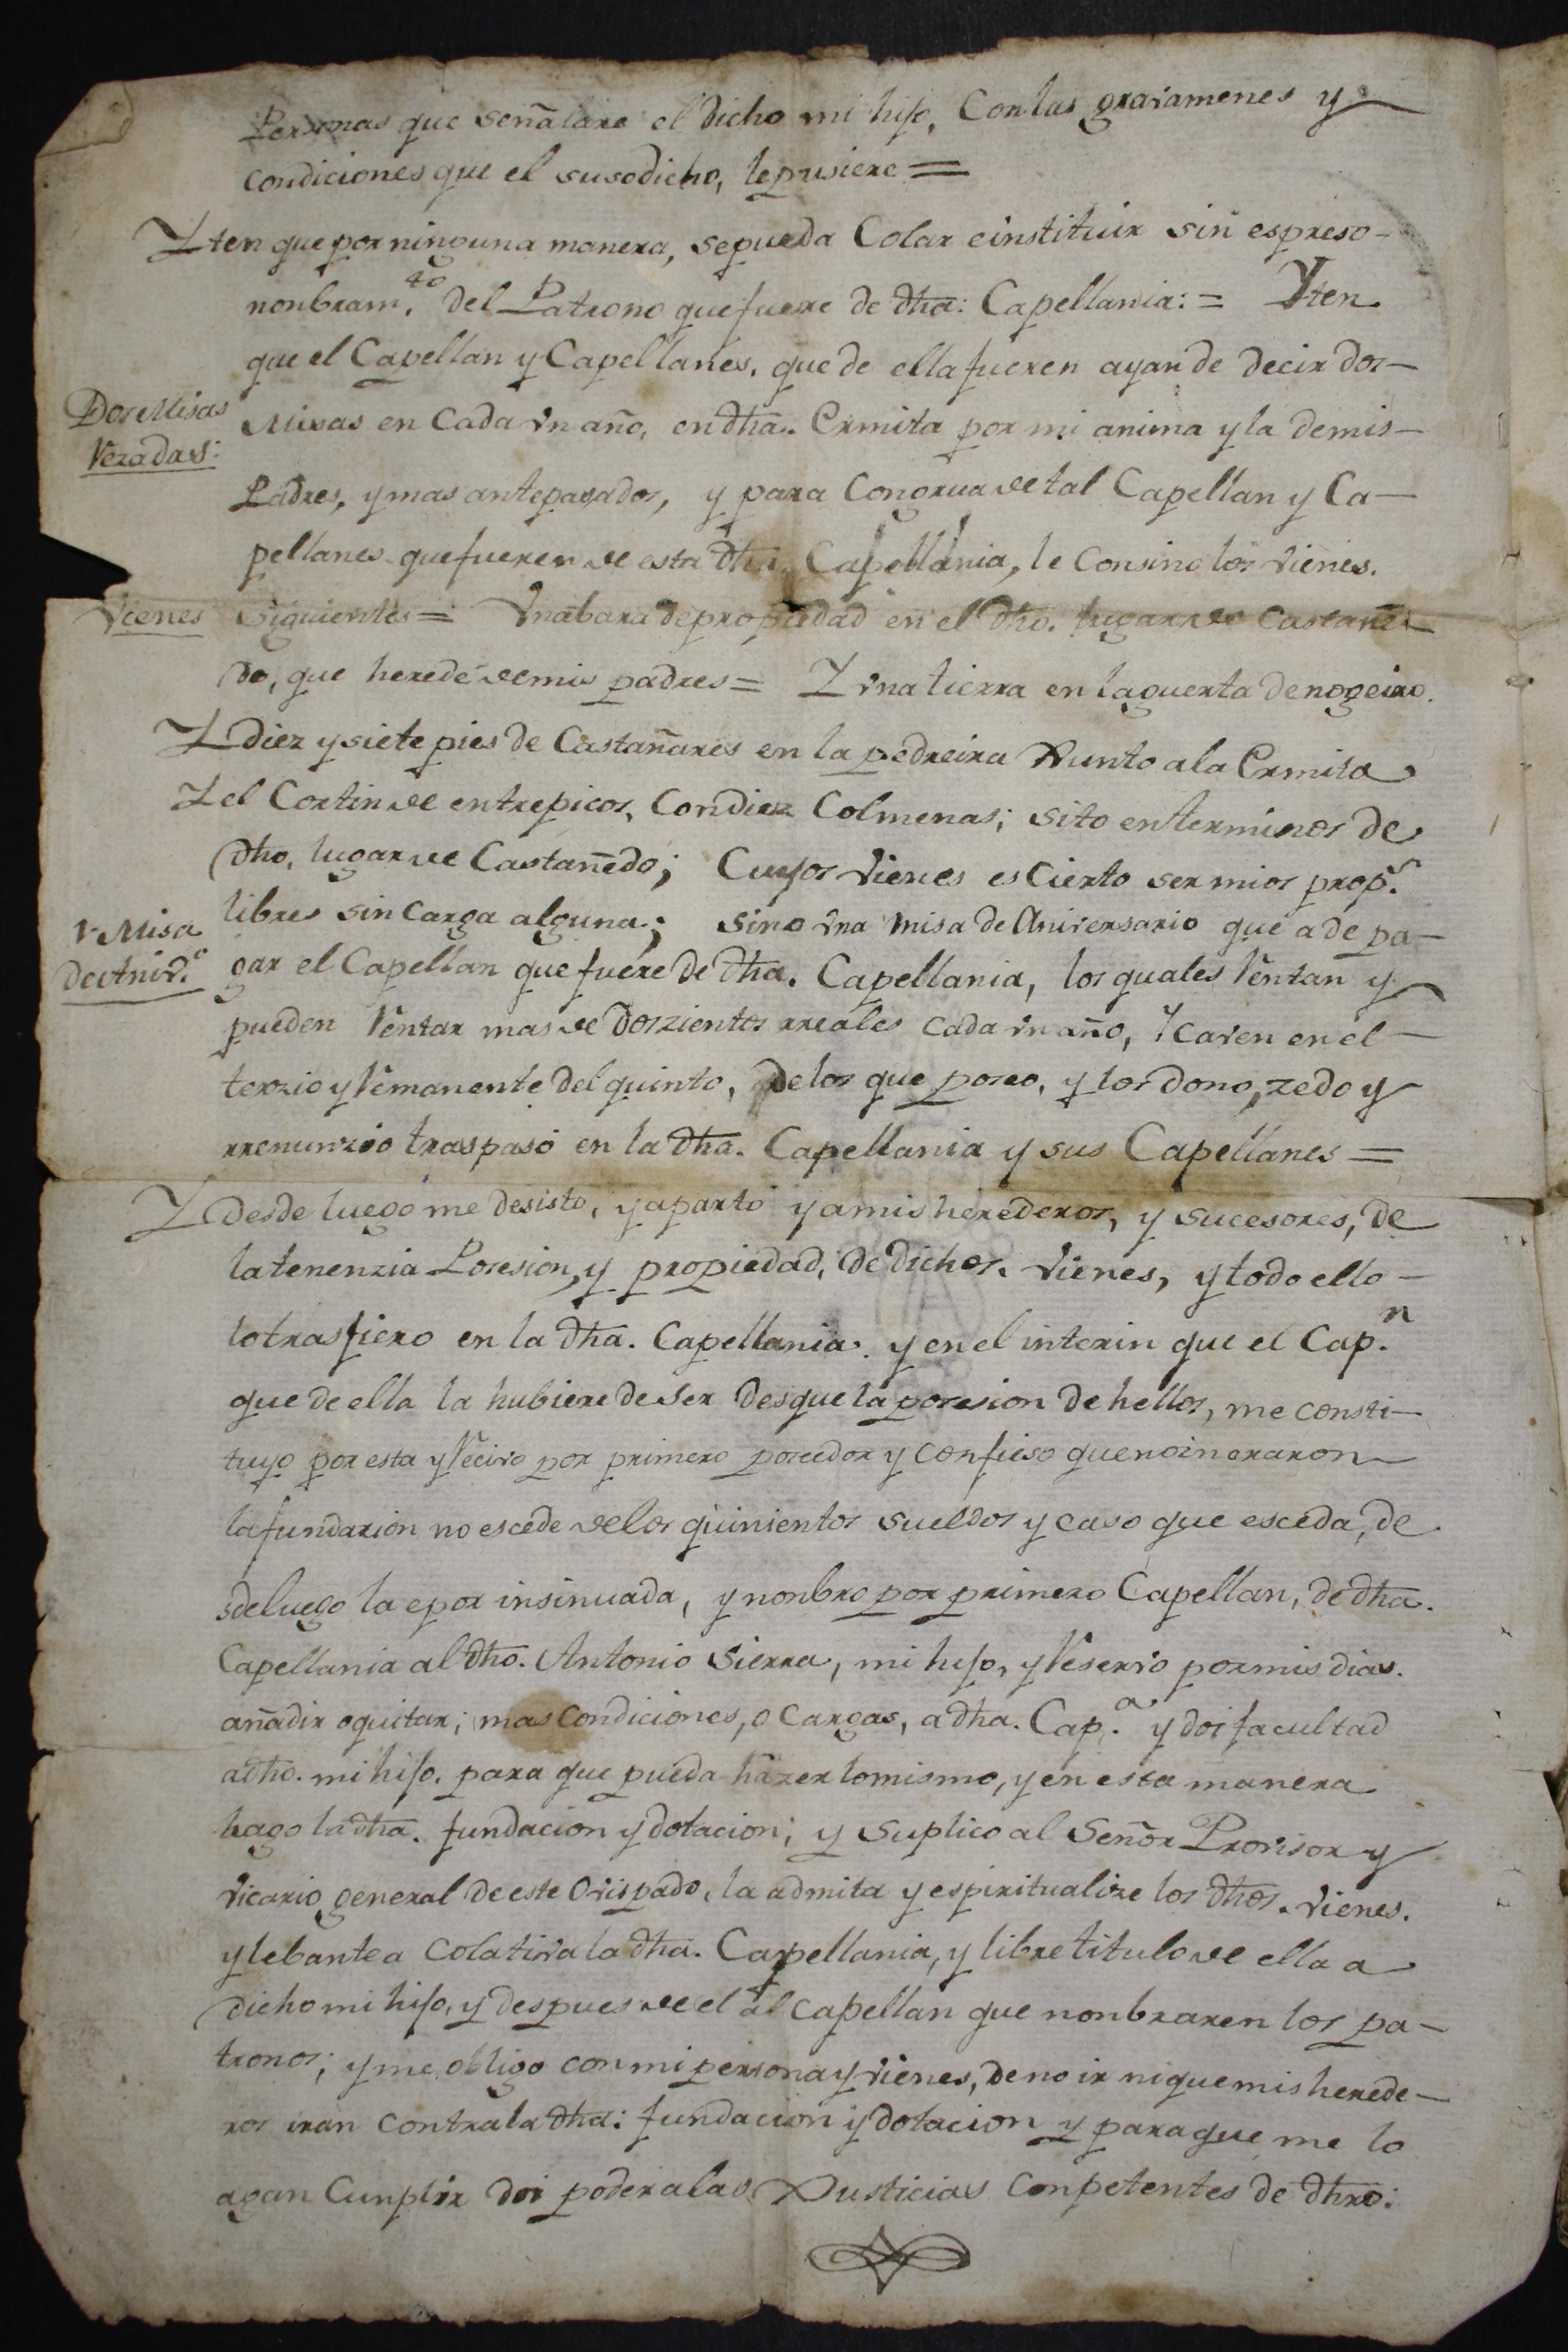 Personas que señalare el dicho mi hijo, Con las gravamenes y
condiciones que el susodicho, le pusiere =
Yten que por ninguna manera, se pueda Colar e instituir sin espreso-
nonbram.to del Patrono que fuere de dha: Capellania: = Yten
que el Capellan y Capellanes, que de ella fueren ayan de decir dos-
Dos Misas
Rezadas:
Misas en Cada vn año, en dha. Ermita por mi anima y la de mis-
Padres, y mas antepasados, y para Congrua de tal Capellan y Ca-
pellanes que fueren de esta dha. Capellania, le Consino los vienes.
Vienes
Siguientes = Vna bara de propiedad en el dho. lugar de Castañe-
do, que heredé de mis padres = Y vna tierra en la guerta de nogeiro.
Y diez y siete pies de Castañares en la pedreira Xunto a la Ermita
Y el Cortin de entrepicos, Con diez Colmenas; sito en terminos de
dho. lugar de Castañedo; Cuyos Vienes es Cierto ser mios prop.s
1 Misa
de Aniv.o
libres sin Carga alguna; sino vna misa de Aniversario que a de pa-
gar el Capellan que fuere de dha. Capellania, los quales Rentan y
pueden Rentar mas de Doszientos rreales cada vn año, Y caven en el-
terzio y Remanente del quinto, de los que poseo, y los dono, zedo y
rrenunzio traspaso en la dha. Capellania y sus Capellanes =
Y Desde luego me desisto, y aparto y a mis herederos, y sucesores, de
la tenenzia Posesion, y propiedad, de dichos. Vienes, y todo ello-
lo trasfiero en la dha. Capellania. y en el interin que el Cap.n
que de ella la hubiere de ser desque la posesion de hellos, me consti-
tuyo por esta y Recivo por primero poseedor y confieso que
la fundazion no escede de los quinientos sueldos y caso que esceda, de
sde luego la e por insinuada, y nonbro por primero Capellan, de dha.
Capellania al dho. Antonio Sierra, mi hijo, y Reservo por mis dias.
añadir o quitar; mas Condiciones, o Cargas, a dha. Cap.a y doi facultad
a dho. mi hijo. para que pueda hazer lo mismo, y en esta manera
hago la dha. fundacion y dotacion; y Suplico al Señor Provisor y
vicario general de este Ovispado, la admita y espiritualize los dhos. vienes.
y lebante a Colativa la dha. Capellania, y libre titulo de ella a
dicho mi hijo, y despues de el al capellan que nonbraren los pa-
tronos; y me obligo con mi persona y vienes, de no ir ni que mis herede-
ros iran contra la dha: fundacion y dotacion y para que me lo
agan Cunplir doi poder a las Xusticias Conpetentes de dhro: